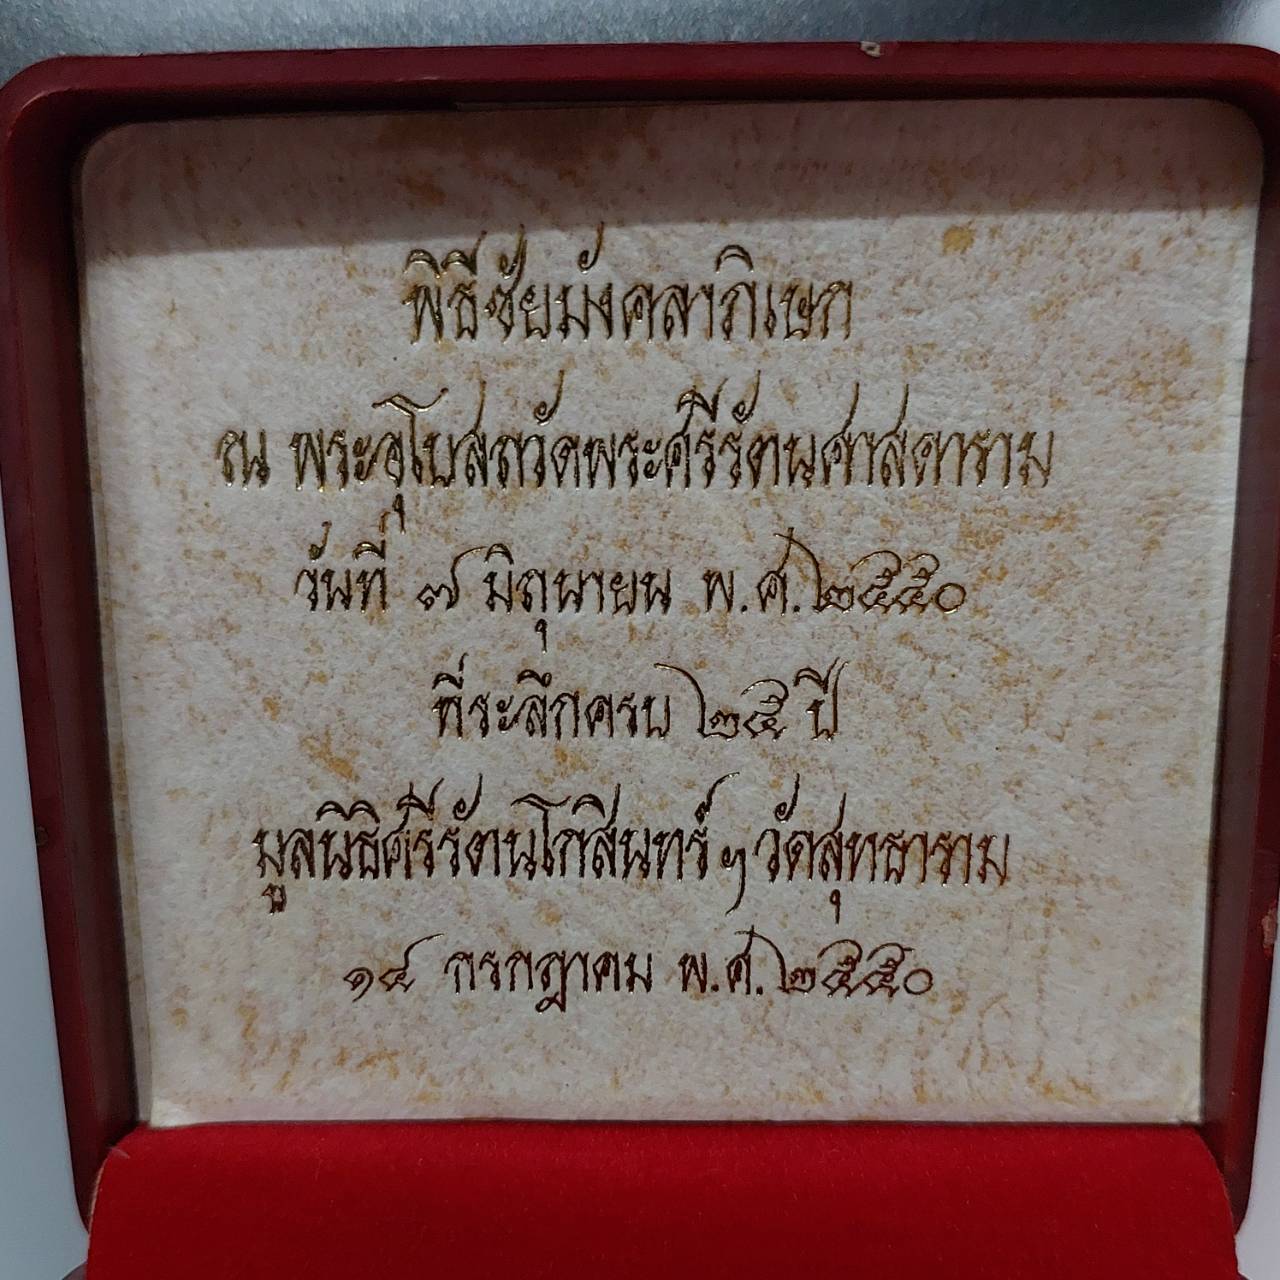 พิธีชัยมังคลาภิเษก
ณ พระอุโบสถวัดพระศรีรัตนศาสดาราม
วันที่ ๗ มิถุนายน พ.ศ.๒๕๕๐
ที่ระลึกครบ ๒๕ ปี
มูลนิธิศรีรัตนโกสินทร์ฯ วัดสุทธาราม
๑๔ กรกฎาคม พ.ศ.๒๕๕๐